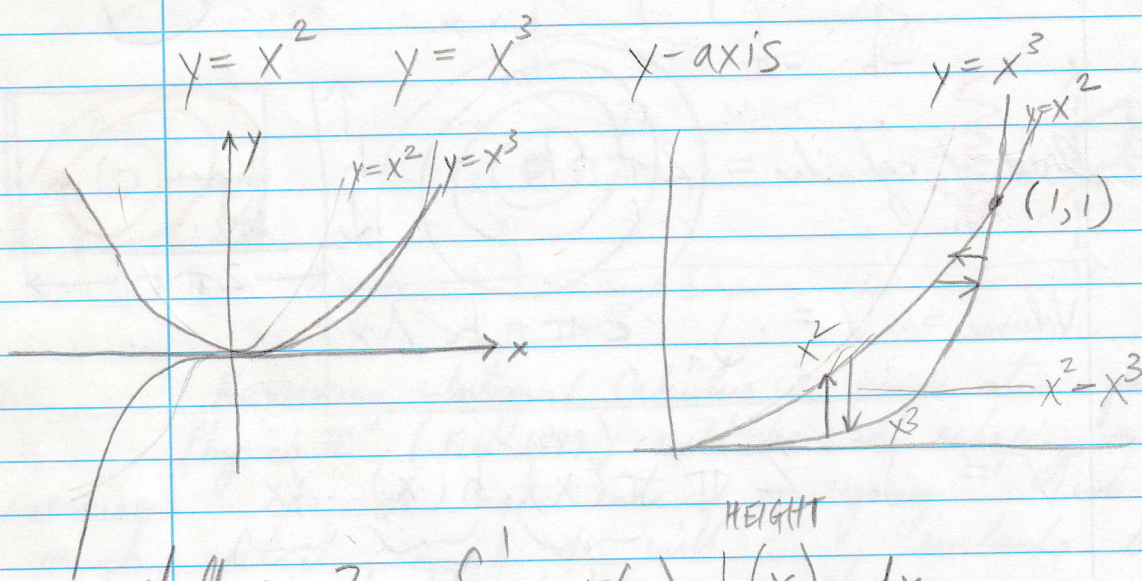 y = x² y = x³ y-axis
y = x³
y=x²
y
y=x² y=x³
(1,1)
x
x²
x² - x³
x³
HEIGHT